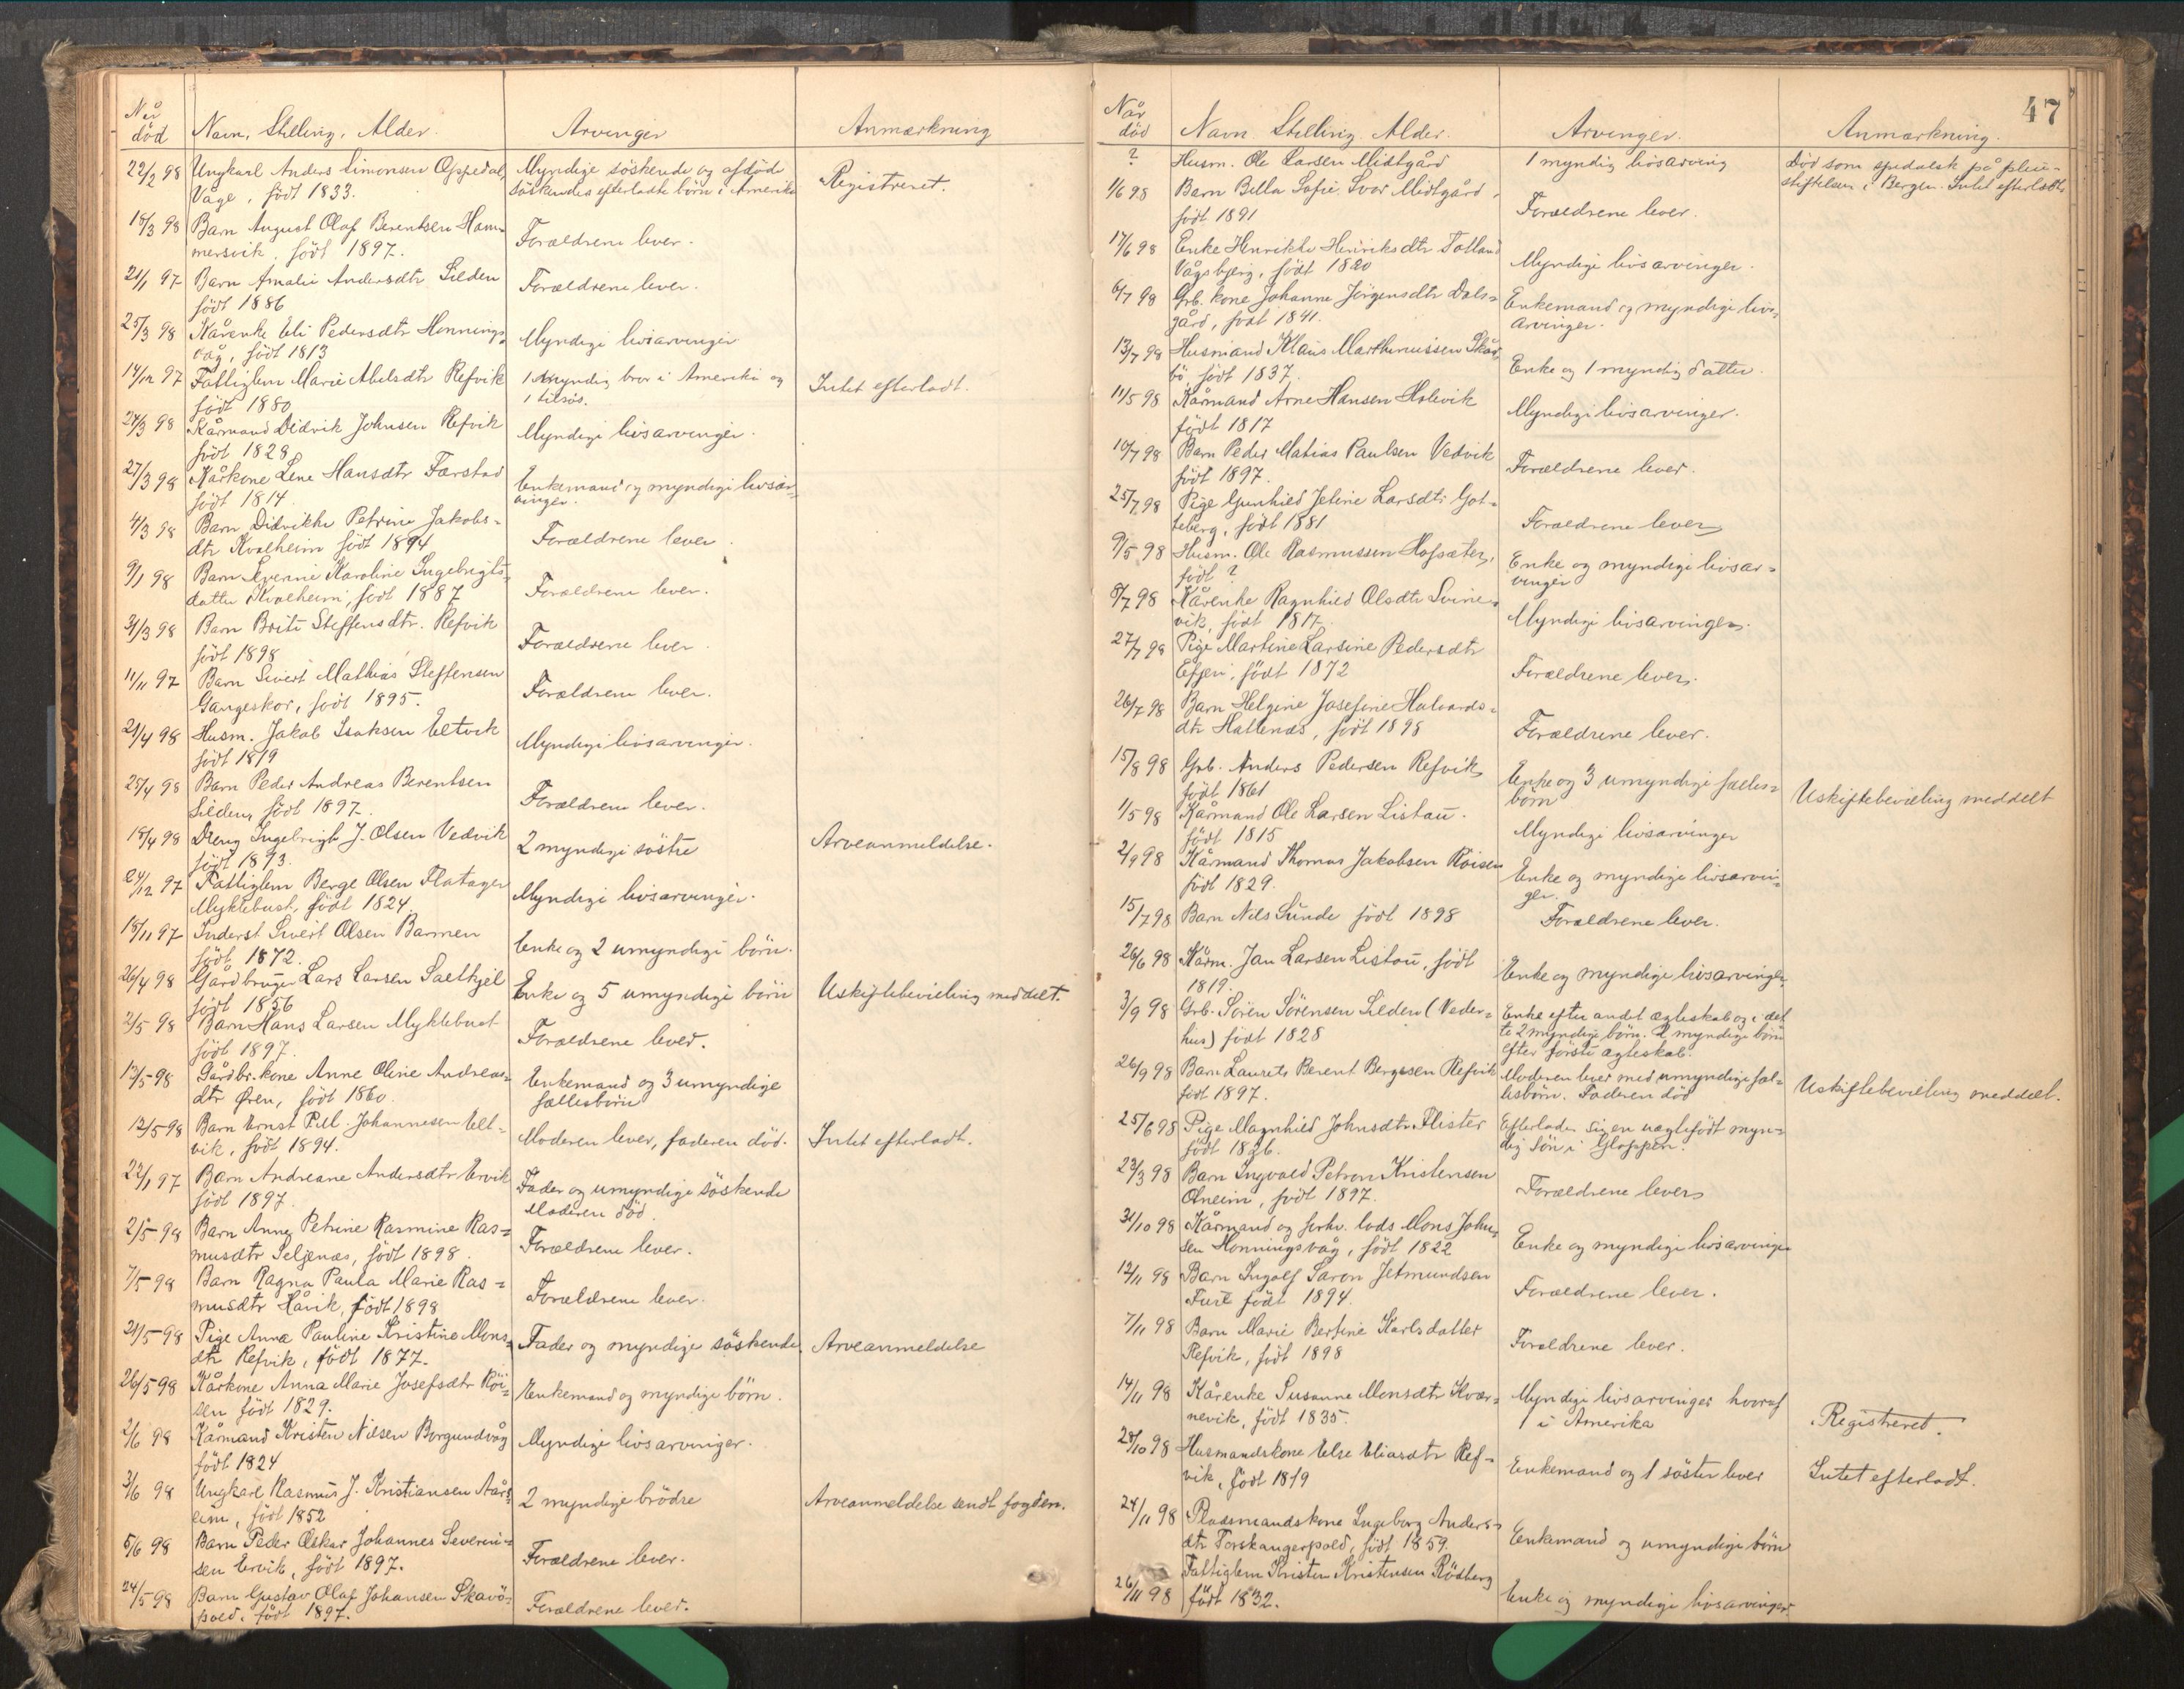 Når død
Navn, Stilling, Alder.
Arvinger
Anmærkning
22/2 98 Ungkarl Anders Simonsen Oppedal, Myndige söskende og afdöde
Våge, födt 1833. söskendes efterladte börn i Amerika Registreret.
18/3 98 Barn August Olaf Berentsen Ham-
mersvik, födt 1897. Forældrene lever.
21/1 97 Barn Amalie Andersdtr Silden
födt 1886 Forældrene lever.
25/3 98 Kårenke Eli Pedersdtr Honnings-
våg, födt 1813 Myndige livsarvinger
14/12 97 Fattiglem Marie Abelsdtr Refvik 1 Myndig bror i Amerika og
födt 1880 1 tilsös. Intet efterladt.
24/3 98 Kårmand Didrik Johnsen Refvik
födt 1828 Myndige livsarvinger.
27/3 98 Kårkone Lene Hansdtr Færstad Enkemand og myndige livsar-
födt 1814. vinger.
4/3 98 Barn Didrikke Petrine Jakobs-
dtr Kvalheim födt 1894 Forældrene lever.
9/1 98 Barn Severine Karoline Ingebrigts-
datter Kvalheim, födt 1887 Forældrene lever.
31/3 98 Barn Brite Steffensdtr. Refvik
födt 1898 Forældrene lever.
11/11 97 Barn Sivert Mathias Steffensen
Gangeskor, födt 1895. Forældrene lever.
21/4 98 Husm. Jakob Isaksen Eltvik
födt 1819 Myndige livsarvinger.
25/4 98 Barn Peder Andreas Berentsen
Silden, födt 1897. Forældrene lever.
18/4 98 Dreng Ingebrigt J. Olsen Vedvik
födt 1873. 2 myndige söstre Arveanmeldelse.
24/12 97 Fattiglem Berge Olsen Flatager
Myklebust, födt 1824. Myndige livsarvinger.
18/11 97 Inderst Sivert Olsen Barmen
födt 1872. Enke og 2 umyndige börn.
26/4 98 Gårdbruger Lars Larsen Saltkjel
födt 1856 Enke og 5 umyndige börn Uskiftebevilling meddelt.
2/5 98 Barn Hans Larsen Myklebust
födt 1897. Forældrene lever.
13/5 98 Gårdbr. kone Anne Oline Andreas- Enkemand og 3 umyndige
dtr Øren, födt 1860. fællesbörn
12/5 98 Barn Ernst Johannesen Elt-
vik, födt 1894. Moderen lever, faderen död. Intet efterladt.
22/1 97 Barn Andreane Andersdtr Ervik Fader og umyndige söskende
födt 1897. Moderen död.
2/5 98 Barn Anne Petrine Rasmine Ras-
musdtr Seljenæs, födt 1898. Forældrene lever.
7/5 98 Barn Ragna Paula Marie Ras-
musdtr Hårik, födt 1898 Forældrene lever.
21/5 98 Pige Anna Pauline Kristine Mons-
dtr Refvik, födt 1877. Fader og myndige söskende. Arveanmeldelse
26/5 98 Kårkone Anna Marie Josefsdtr Röi-
sen födt 1829. Enkemand og myndige börn.
2/6 98 Kårmand Kristen Nilsen Borgundvåg
födt 1824 Myndige livsarvinger.
3/6 98 Ungkarl Rasmus J. Kristiansen Aars-
eim, födt 1852 2 myndige brödre Arveanmeldelse sendt fogden.
5/6 98 Barn Peder Oskar Johannes Severin-
sen Ervik, födt 1897. Forældrene lever.
24/5 98 Barn Gustav Olaf Johansen Skavö-
poll. födt 1897. Forældrene lever.
47
Når död
Navn Stilling Alder.
Arvinger.
Anmærkning.
? Husm. Ole Larsen Midtgård 1 myndig livsarving Död som spedalsk på pleie-
stiftelsen i Bergen. Intet efterladt.
1/6 98 Barn Bella Sofie Ivar Midtgård,
födt 1891 Forældrene lever.
17/6 98 Enke Henrikke Henriksdtr Totland
Vågsbjerg, födt 1820 Myndige livsarvinger.
6/7 98 Grb. kone Johanne Jörgensdtr Dals- Enkemand og myndige livs-
gård, födt 1841. arvinger.
13/7 98 Husmand Klaus Marthinussen Skår-
bö, födt 1837. Enke og 1 myndig datter.
11/5 98 Kårmand Arne Hansen Holevik
födt 1817 Myndige livsarvinger.
10/7 98 Barn Peder Matias Paulsen Vedvik
födt 1897. Forældrene lever.
25/7 98 Pige Gunhild Jetine Larsdtr Got-
teberg, födt 1881 Forældrene lever
9/5 98 Husm. Ole Rasmussen Hofsæter, Enke og myndige livsar-
födt ? vinger
8/7 98 Kårenke Ragnhild Olsdtr Svine-
vik, födt 1817. Myndige livsarvinger.
27/7 98 Pige Martine Larsine Pedersdtr
Eltjen, födt 1872 Forældrene lever.
26/7 98 Barn Helgine Josefine Halvards-
dtr Hallenæs, födt 1898 Forældrene lever.
15/8 98 Grb. Anders Pedersen Refvik Enke og 3 umyndige fælles-
födt 1861 börn Uskiftebevilling meddelt
1/5 98 Kårmand Ole Larsen Listau.
födt 1815 Myndige livsarvinger
2/9 98 Kårmand Thomas Jakobsen Röisen Enke og myndige livsarvin-
födt 1829. ger.
15/7 98 Barn Nils Sunde födt 1898 Forældrene lever.
26/6 98 Kårm. Jan Larsen Listau, födt
1819. Enke og myndige livsarvinger
3/9 98 Grb. Sören Sörensen Silden (Veder- Enke efter andet ægteskab og i det-
hus) födt 1828 te 2 myndige börn. 2 myndige börn
efter förste ægteskab.
26/9 98 Barn Laurits Berent Bergesen Refvik Moderen lever med umyndige fæl-
födt 1897. lesbörn. Faderen död Uskiftebevilling meddelt.
25/6 98 Pige Magnhild Johnsdtr Flister Efterlader sig en uægtefödt myn-
födt 1826. dig sön i Gloppen.
23/3 98 Barn Ingvald Petron Kristensen
Otneim, födt 1897. Forældrene lever
31/10 98 Kårmand og forhv. lods Mons John-
sen Honningsvåg, födt 1822 Enke og myndige livsarvinger
12/11 98 Barn Ingolf Saron Jetmundsen
Fure födt 1894. Forældrene lever.
7/11 98 Barn Marie Bertine Karlsdatter
Refvik, födt 1898 Forældrene lever.
14/11 98 Kårenke Susanne Monsdtr Kvær- Myndige livsarvinger hvoraf
nevik, födt 1835. 1 i Amerika Registreret.
28/10 98 Husmandskone Else Eliasdtr Ref-
vik, födt 1819 Enkemand og 1 söster lever Intet efterladt.
24/11 98 Pladsmandskone Ingeborg Anders-
dtr Torskangerpold, födt 1859. Enkemand og umyndige börn
26/11 98 Fattiglem Kristen Kristensen Rösberg
födt 1832. Enke og myndige livsarvinger